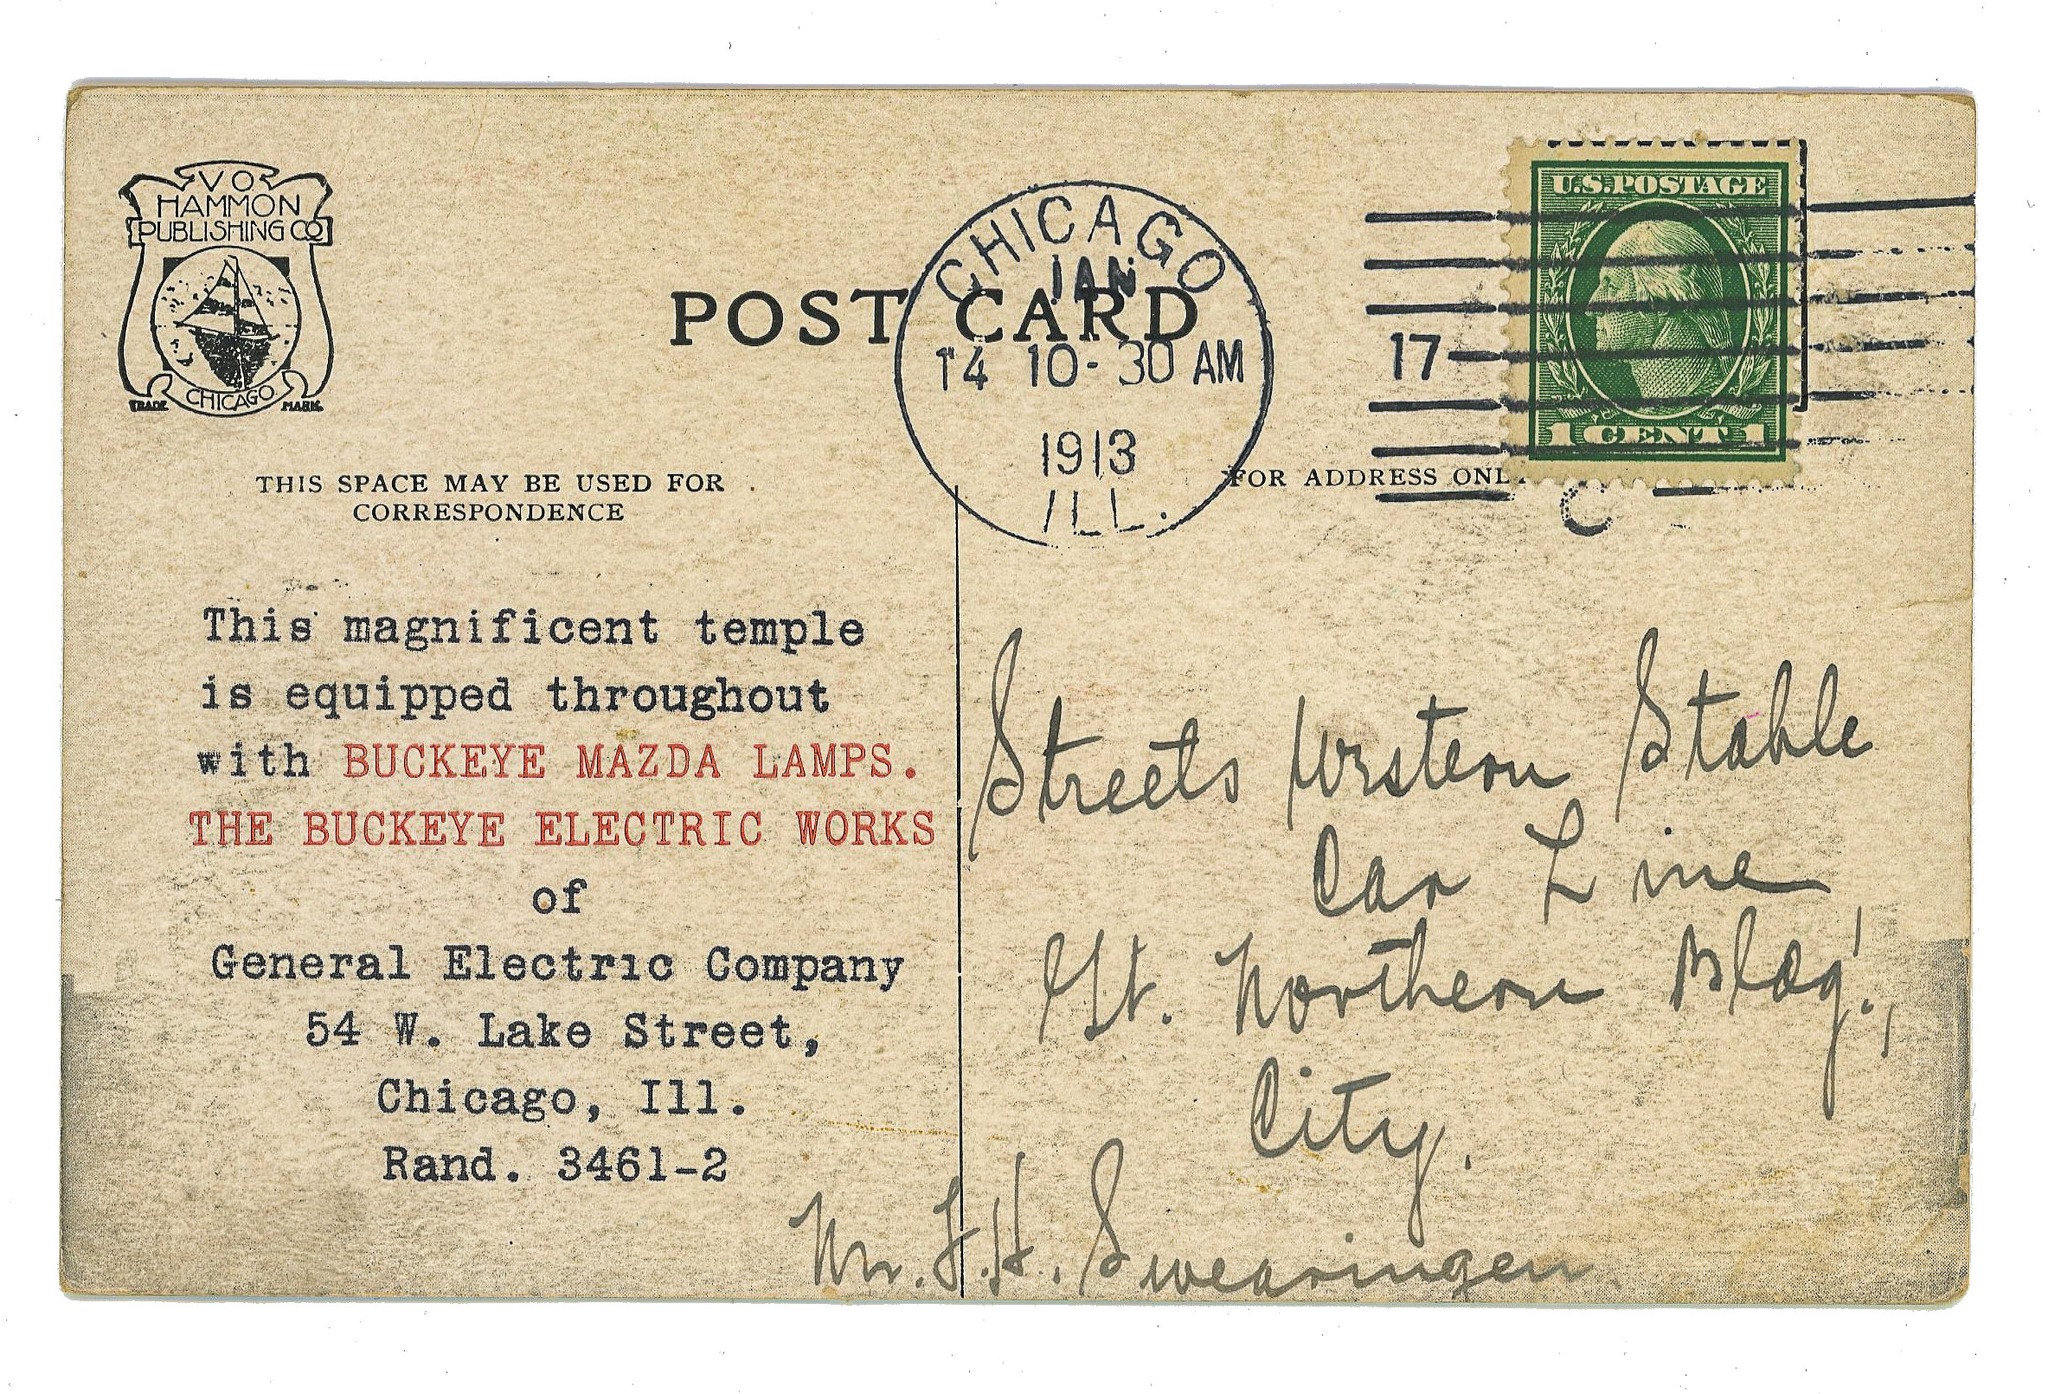 V O
HAMMON
PUBLISHING CO
CHICAGO
TRADE MARK
POST CARD
CHICAGO
JAN
14 10-30 AM
1913
ILL.
17
U.S. POSTAGE
1 CENT 1
C
THIS SPACE MAY BE USED FOR
CORRESPONDENCE
FOR ADDRESS ONLY
This magnificent temple
is equipped throughout
with BUCKEYE MAZDA LAMPS.
THE BUCKEYE ELECTRIC WORKS
of
General Electric Company
54 W. Lake Street,
Chicago, Ill.
Rand. 3461-2
Streets Western Stable
Car Line
Gt. Northern Bldg.,
City.
Mr. F. H. Swearingen